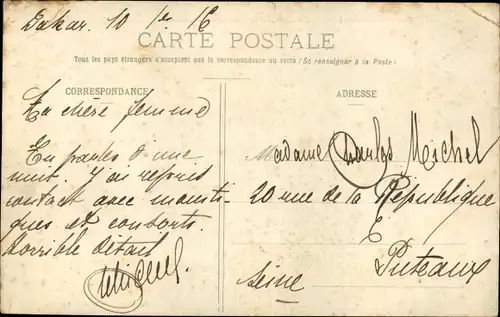 Dakar. 10 1er 16
CARTE POSTALE
Tous les pays étrangers n'acceptent pas la correspondance au recto (Se renseigner à la Poste)
CORRESPONDANCE
ADRESSE
chère femme
En parles d'une
nuit. J'ai repris
contact avec mousti-
ques et consorts.
horrible détail
Madame Charles Michel
20 rue de la République
Puteaux
Seine